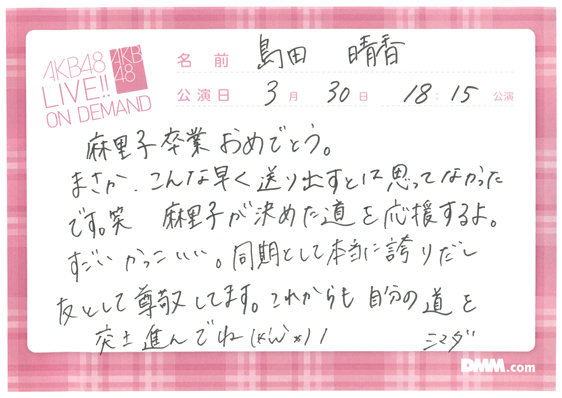 AKB48
LIVE!!
ON DEMAND
AKB
48
名前 島田 晴香
公演日 3月30日 18:15公演
麻里子卒業おめでとう。
まさか、こんな早く送り出すとは思ってなかった
です。笑 麻里子が決めた道を応援するよ。
すごいかっこいい。同期として本当に誇りだし
友として尊敬してます。これからも自分の道を
突き進んでね
シマダ
DMM.com